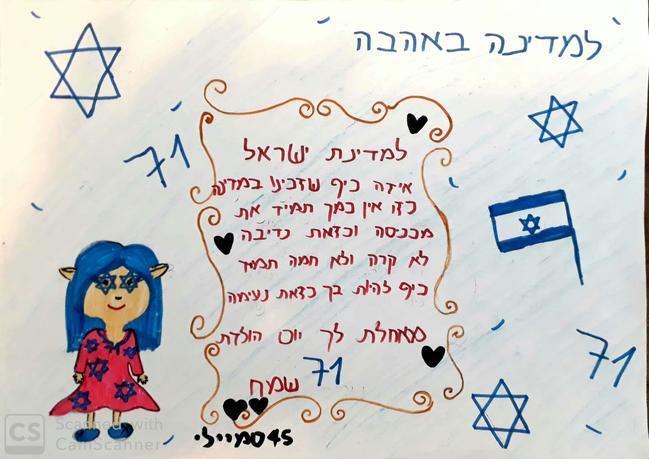 למדינה באהבה
71
למדינת ישראל
איזה כיף שזכינו במדינה
כזו אין כמך תמיד את
מכניסה וכזאת נדיבה
לא קרה ולא חמה תמיד
כיף להיות בך כזאת נעימה
מאחלת לך יום הולדת
71 שמח
71
סמיילי45
CS Scanned with
CamScanner